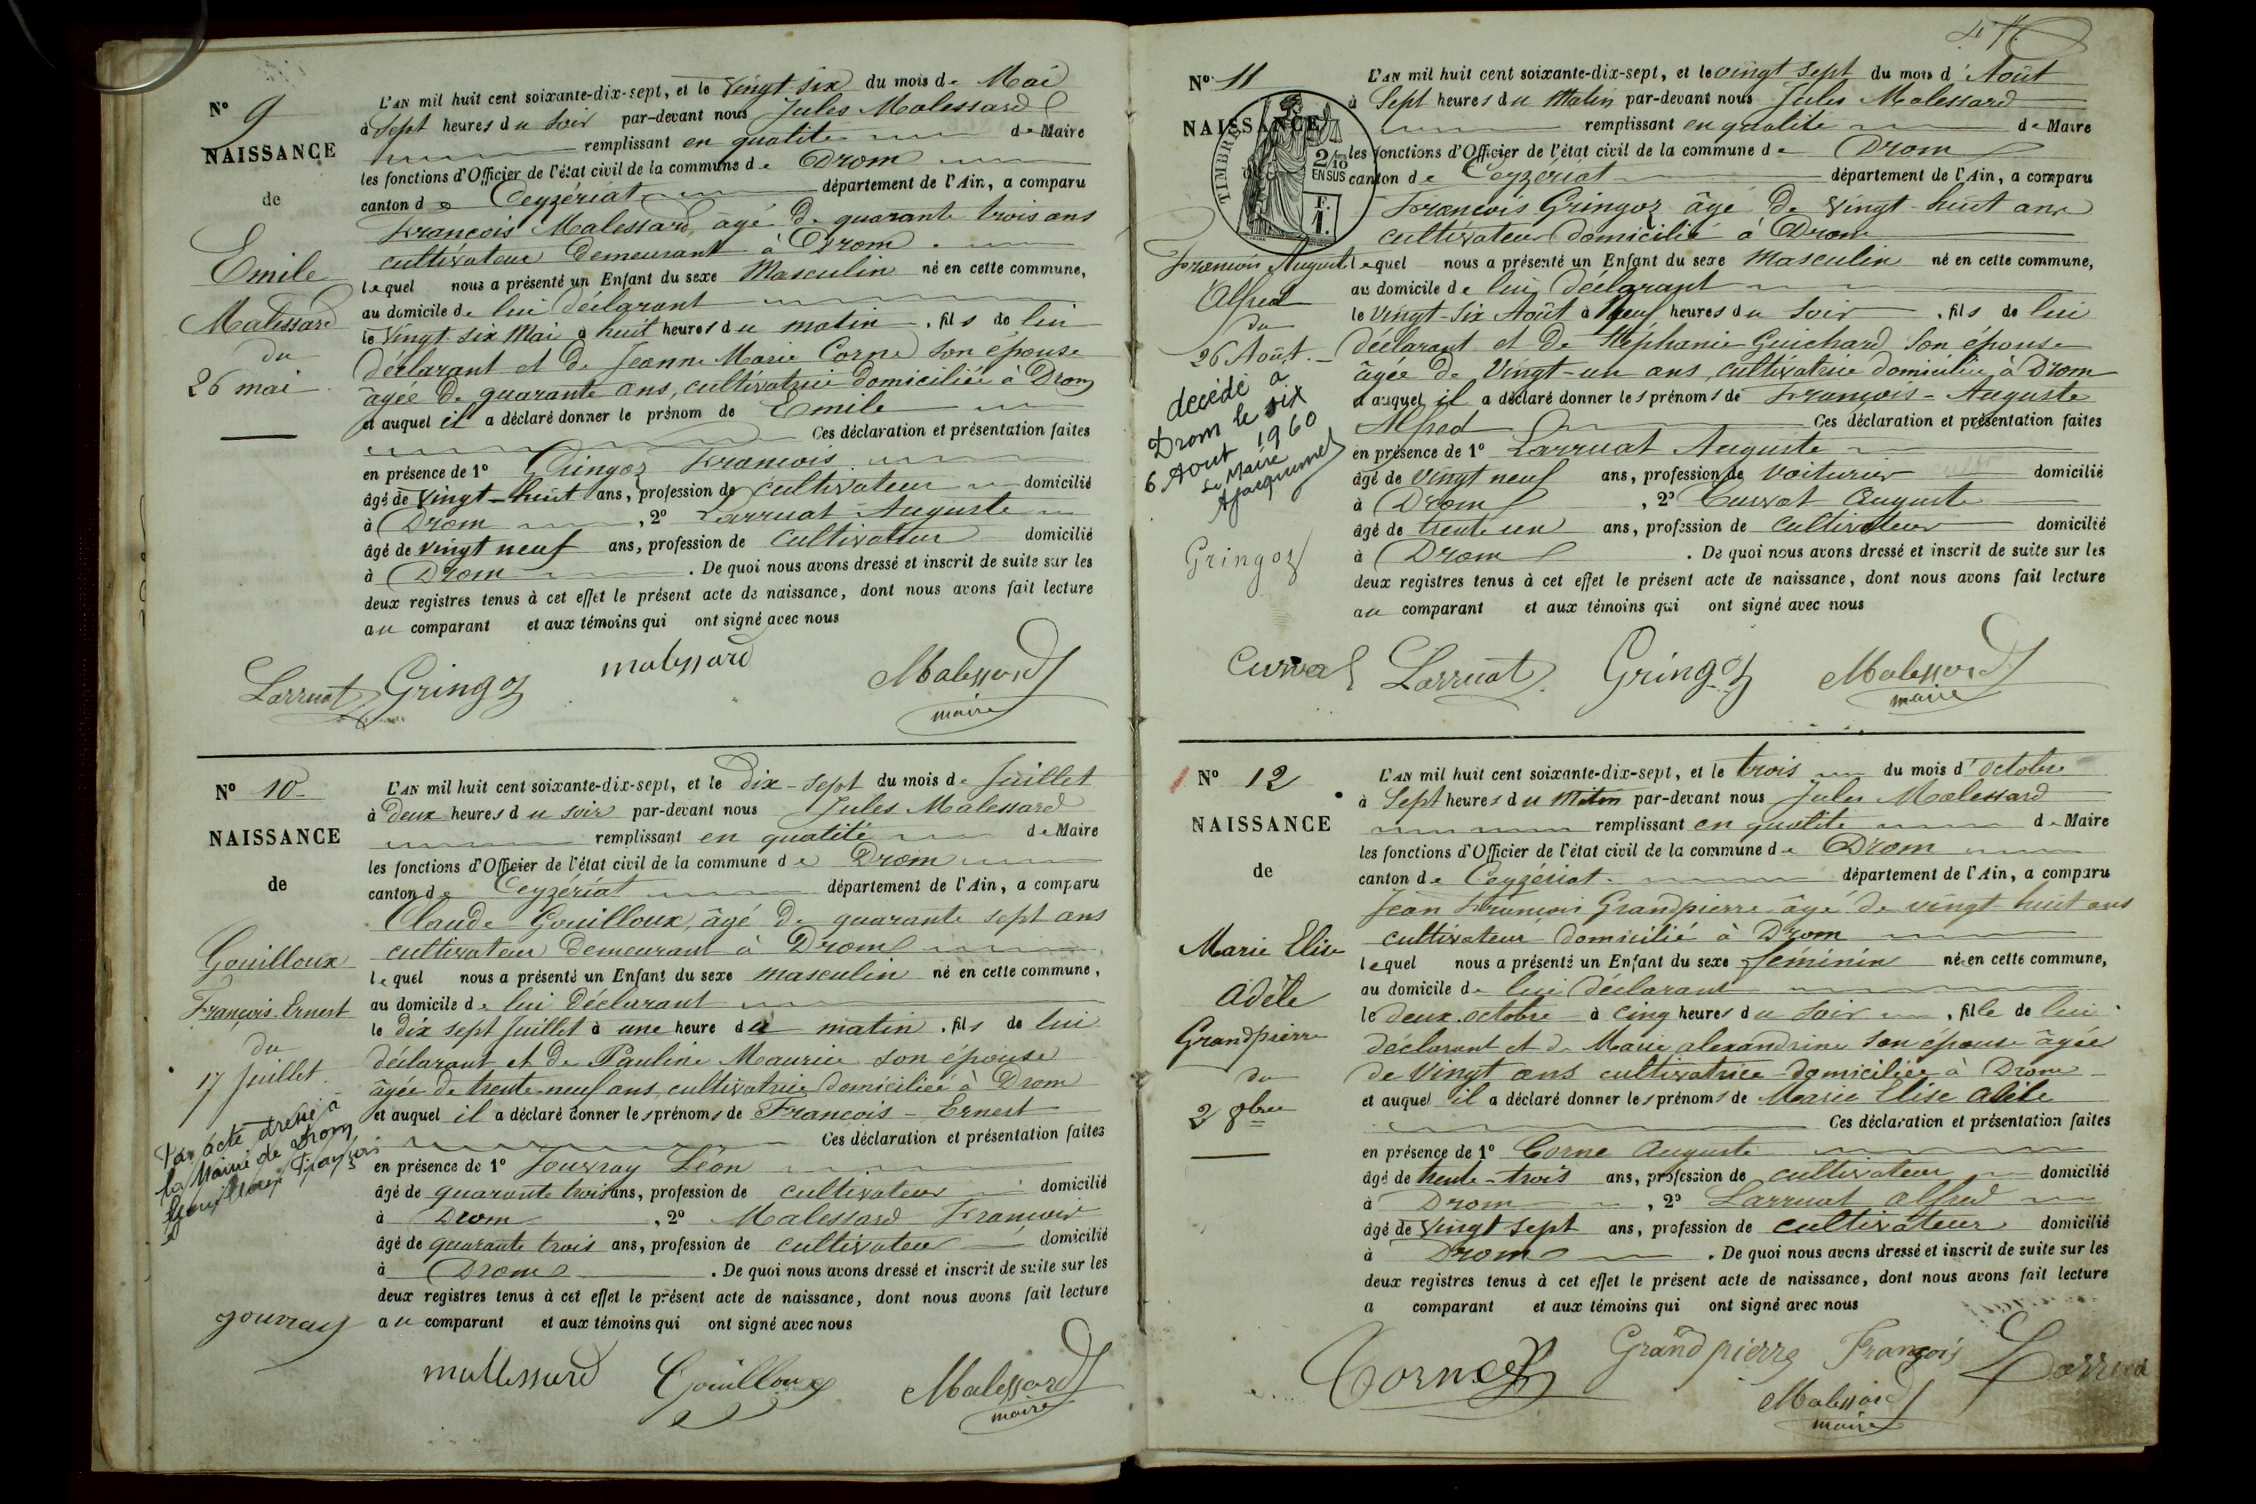 Nº 9
NAISSANCE
de
Emile
Malessard
du
26 mai
L'AN mil huit cent soixante-dix-sept, et le vingt six du mois de Mai
à Sept heures du Soir par-devant nous Jules Malessard
remplissant en qualité de Maire
les fonctions d'Officier de l'état civil de la commune de Drom
canton de Ceyzériat département de l'Ain, a comparu
François Malessard, âgé de quarante trois ans
cultivateur demeurant à Drom
lequel nous a présenté un Enfant du sexe Masculin né en cette commune,
au domicile de lui déclarant
le Vingt six Mai à huit heures du matin, fils de lui
déclarant et de Jeanne Marie Corne son épouse
âgée de quarante ans, cultivatrice domiciliée à Drom
et auquel il a déclaré donner le prénom de Emile
Ces déclaration et présentation faites
en présence de 1º Gringoz François
âgé de vingt-huit ans, profession de cultivateur domicilié
à Drom, 2º Larruat Auguste
âgé de vingt neuf ans, profession de cultivateur domicilié
à Drom. De quoi nous avons dressé et inscrit de suite sur les
deux registres tenus à cet effet le présent acte de naissance, dont nous avons fait lecture
au comparant et aux témoins qui ont signé avec nous
Larruat Gringoz malessard Malessard
maire
Nº 10
NAISSANCE
de
Gouilloux
François Ernest
du
17 Juillet
Par acte dressé à
la Mairie de Drom
Gouilloux François
L'AN mil huit cent soixante-dix-sept, et le Dix-sept du mois de Juillet
à Deux heures du soir par-devant nous Jules Malessard
remplissant en qualité de Maire
les fonctions d'Officier de l'état civil de la commune de Drom
canton de Ceyzériat département de l'Ain, a comparu
Claude Gouilloux, âgé de quarante sept ans
cultivateur demeurant à Drom
lequel nous a présenté un Enfant du sexe masculin né en cette commune,
au domicile de lui déclarant
le dix sept Juillet à une heure du matin, fils de lui
déclarant et de Pauline Maurice son épouse
âgée de trente-neuf ans, cultivatrice domiciliée à Drom
et auquel il a déclaré donner les prénoms de François-Ernest
Ces déclaration et présentation faites
en présence de 1º Jouvray Léon
âgé de quarante trois ans, profession de cultivateur domicilié
à Drom, 2º Malessard François
âgé de quarante trois ans, profession de cultivateur domicilié
à Drom. De quoi nous avons dressé et inscrit de suite sur les
deux registres tenus à cet effet le présent acte de naissance, dont nous avons fait lecture
au comparant et aux témoins qui ont signé avec nous
Jouvray
mallessard Gouilloux Malessard
maire
Nº 11
NAISSANCE
TIMBRE
2/10
EN SUS
F.
1.
François Auguste
Alfred
du
26 Août
décédé à
Drom le six
6 Aout 1960
Le Maire
AJacquemet
Gringoz
L'AN mil huit cent soixante-dix-sept, et le vingt sept du mois d'Août
à Sept heures du Matin par-devant nous Jules Malessard
remplissant en qualité de Maire
les fonctions d'Officier de l'état civil de la commune de Drom
canton de Ceyzériat département de l'Ain, a comparu
François Gringoz âgé de vingt-huit ans
cultivateur domicilié à Drom
lequel nous a présenté un Enfant du sexe Masculin né en cette commune,
au domicile de lui déclarant
le Vingt-Six Août à Neuf heures du Soir, fils de lui
déclarant et de Stéphanie Guichard Son épouse
âgée de Vingt-un ans, cultivatrice domiciliée à Drom
et auquel il a déclaré donner les prénoms de François-Auguste
Alfred Ces déclaration et présentation faites
en présence de 1º Larruat Auguste
âgé de vingt neuf ans, profession de Voiturier domicilié
à Drom, 2º Curvat Auguste
âgé de trente un ans, profession de cultivateur domicilié
à Drom. De quoi nous avons dressé et inscrit de suite sur les
deux registres tenus à cet effet le présent acte de naissance, dont nous avons fait lecture
au comparant et aux témoins qui ont signé avec nous
Curvat Larruat Gringoz Malessard
maire
Nº 12
NAISSANCE
de
Marie Elise
Adèle
Grandpierre
du
2 8bre
L'AN mil huit cent soixante-dix-sept, et le trois du mois d'octobre
à Sept heures du Matin par-devant nous Jules Malessard
remplissant en qualité de Maire
les fonctions d'Officier de l'état civil de la commune de Drom
canton de Ceyzériat département de l'Ain, a comparu
Jean François Grandpierre âgé de vingt-huit ans
cultivateur domicilié à Drom
lequel nous a présenté un Enfant du sexe féminin né en cette commune,
au domicile de lui déclarant
le deux octobre à cinq heures du Soir, fille de lui
déclarant et de Marie alexandrine Son épouse âgée
de Vingt ans cultivatrice domiciliée à Drom
et auquel il a déclaré donner les prénoms de Marie Elise Adèle
Ces déclaration et présentation faites
en présence de 1º Corne Auguste
âgé de trente-trois ans, profession de cultivateur domicilié
à Drom, 2º Larruat alfred
âgé de Vingt sept ans, profession de cultivateur domicilié
à Drom. De quoi nous avons dressé et inscrit de suite sur les
deux registres tenus à cet effet le présent acte de naissance, dont nous avons fait lecture
a comparant et aux témoins qui ont signé avec nous
Corne Grandpierre François Larruat
Malessard
maire